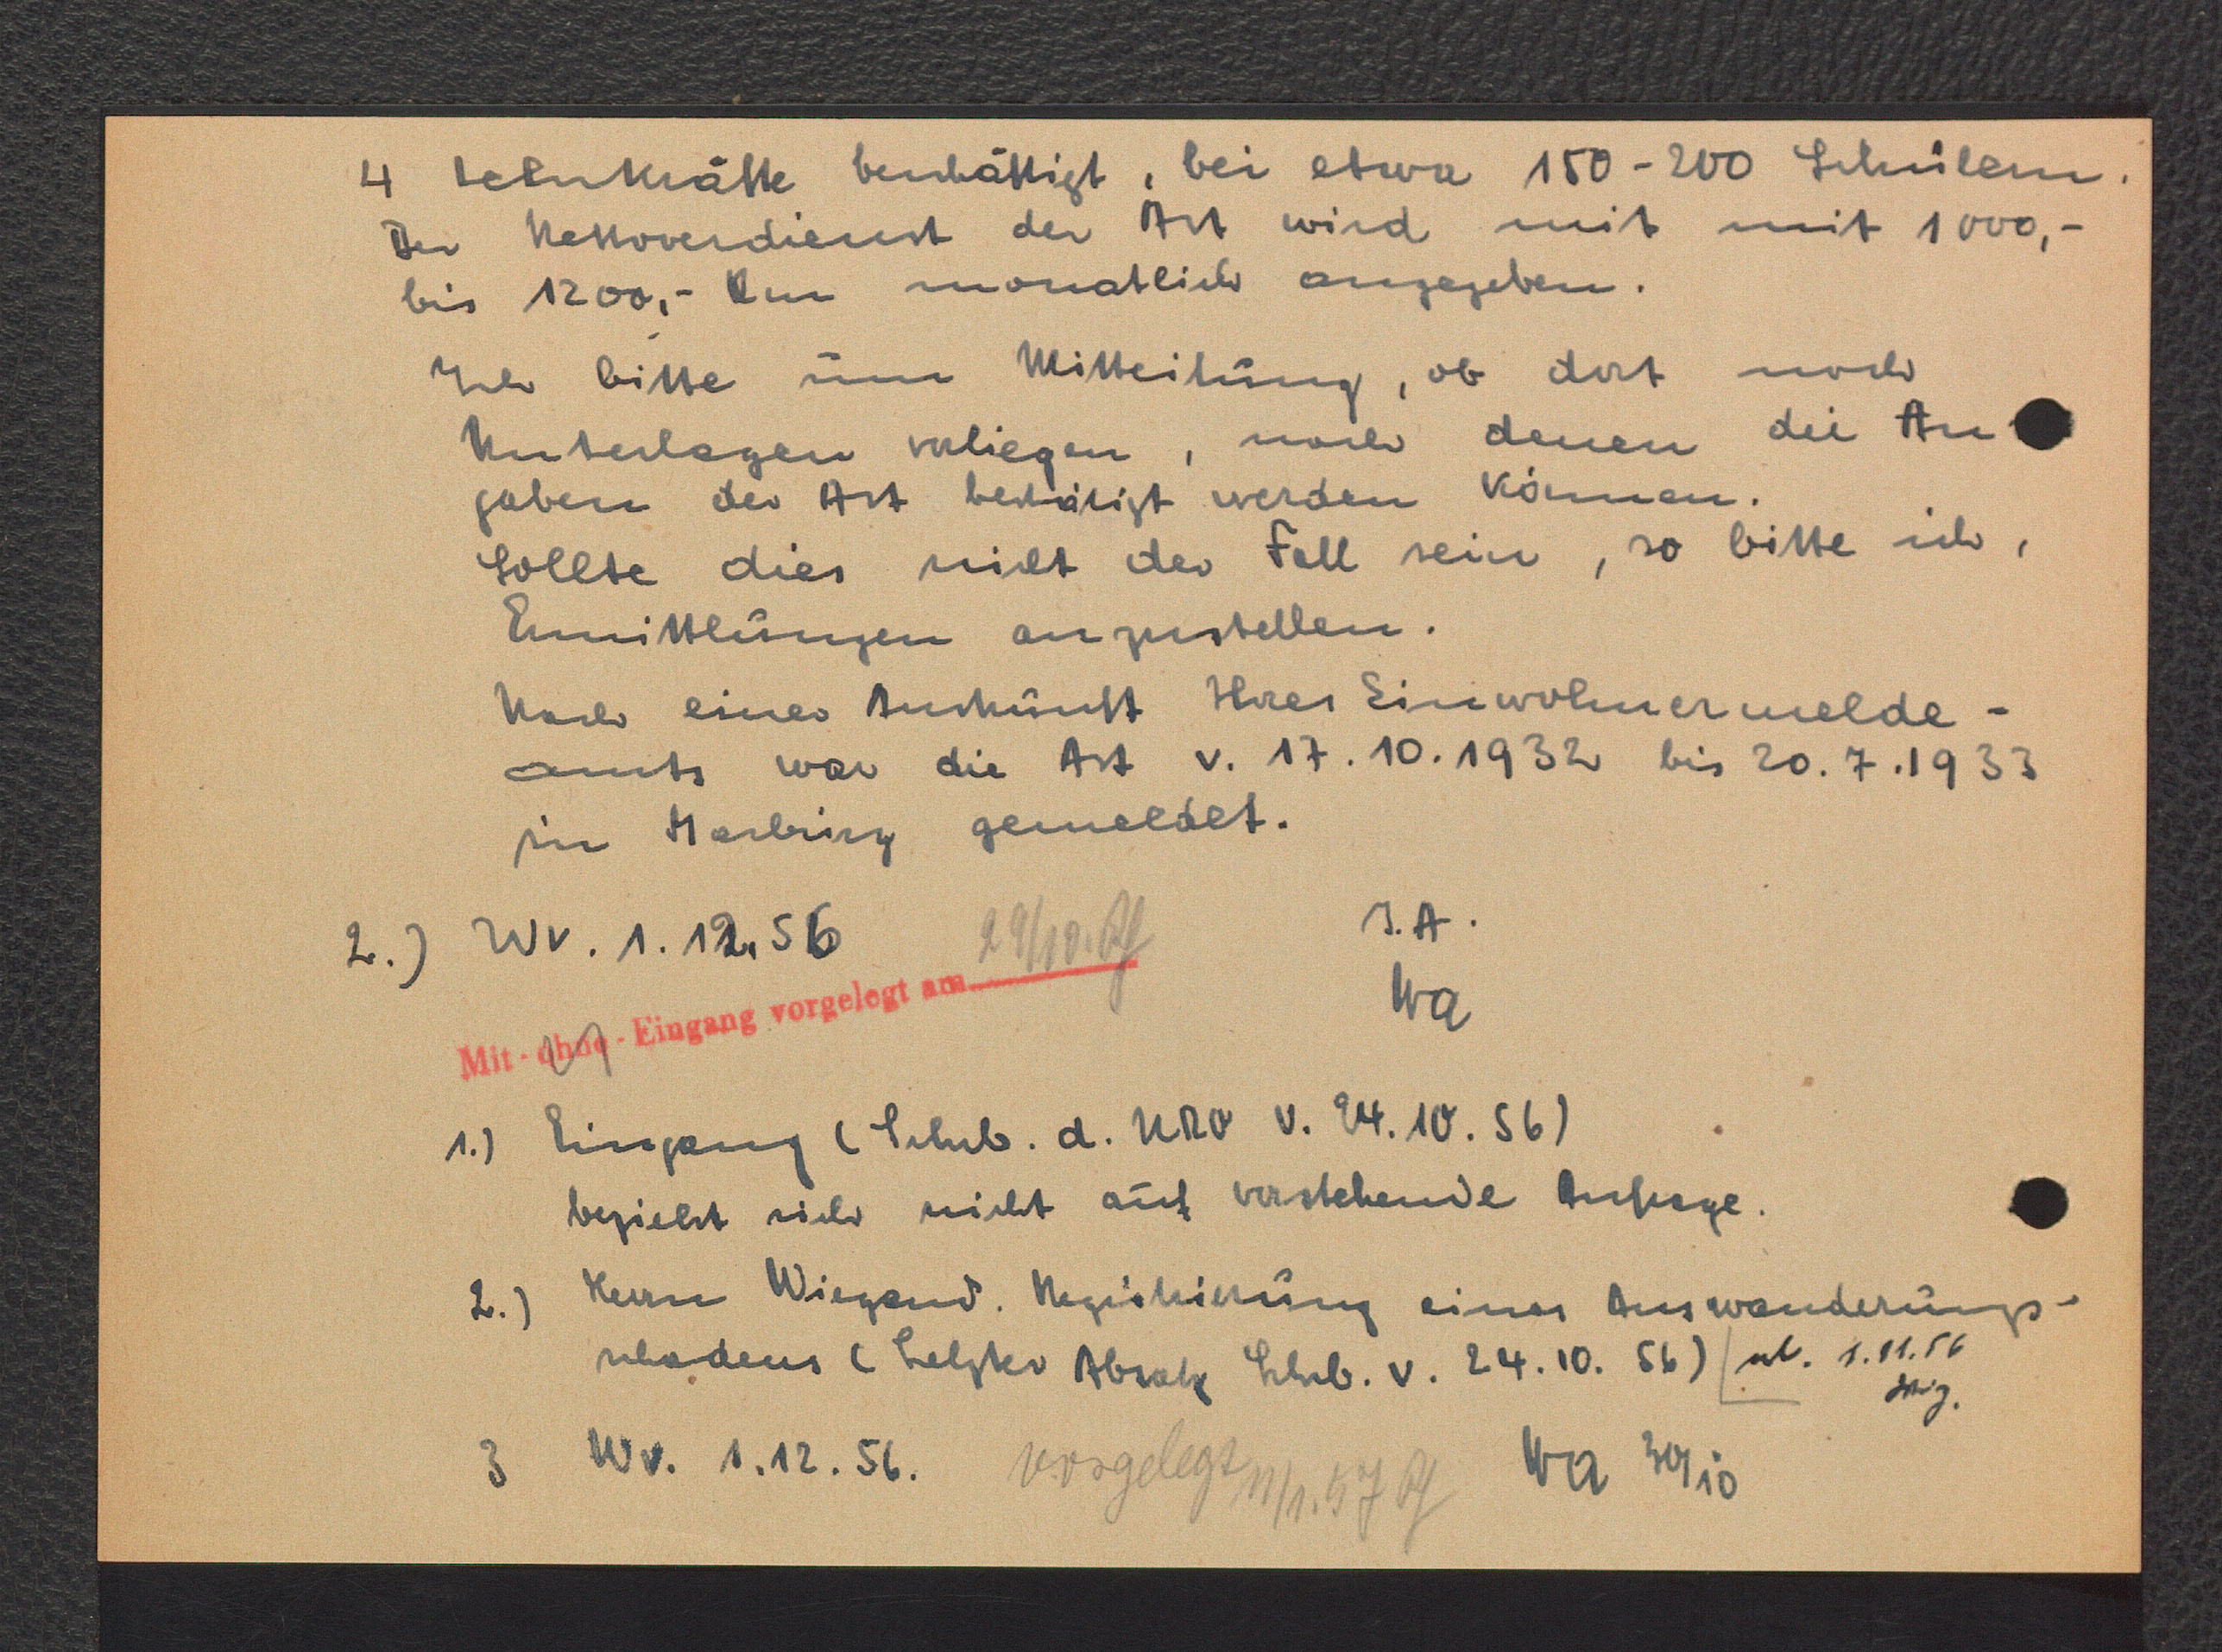 4 Lehrkräfte beschäftigt, bei etwa 150-200 Schülern.
Der Nettoverdienst der Ast wird mit mit 1000,-
bis 1200,- RM monatlich angegeben.
Ich bitte um Mitteilung, ob dort noch
Unterlagen vorliegen, nach denen die An
gaben der Ast bestätigt werden können.
Sollte dies nicht der Fall sein, so bitte ich,
Ermittlungen anzustellen.
Nach einer Auskunft Ihres Einwohnermelde-
amts war die Ast v. 17.10.1932 bis 20.7.1933
in Marburg gemeldet.
2.) Wv. 1.12.56 29/10.
I.A.
Wa
Mit - ohne - Eingang vorgelegt am
1.) Eingang (Schrb. d. URO v. 24.10.56)
bezieht sich nicht auf vorstehende Anfrage.
2.) Herrn Wiegand. Registrierung eines Auswanderungs-
schadens (Letzter Absatz Schrb. v. 24.10.56) 1.11.56
3 Wv. 1.12.56. vorgelegt 11/1.57 Wa 30/10